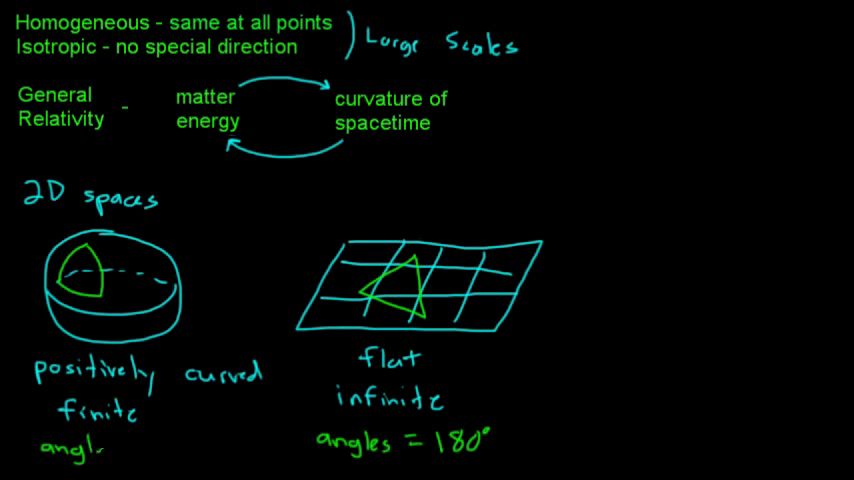 Homogeneous - same at all points
Isotropic - no special direction
Large Scales
General Relativity -
matter energy
curvature of spacetime
2D spaces
positively curved
finite
angl
flat
infinite
angles = 180°